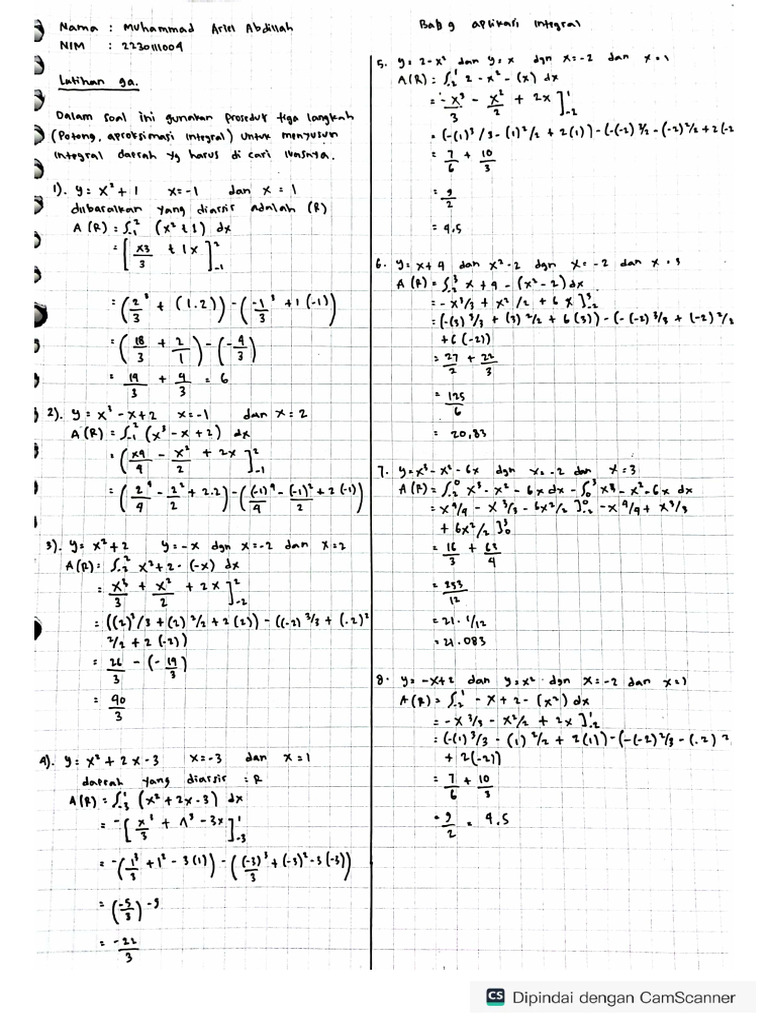 Nama : Muhammad Ariel Abdillah
NIM : 2230111004
Latihan 9a.
Dalam soal ini gunakan prosedur tiga langkah
(Potong, aproksimasi integral) untuk menyusun
integral daerah yg harus di cari luasnya.
1). y = x² + 1 x = -1 dan x = 1
diibaratkan yang diarsir adalah (R)
A (R) = ∫₋₁² (x² + 1) dx
= [x3/3 + 1x]₋₁²
= (2³/3 + (1.2)) - (-1³/3 + 1(-1))
= (18/3 + 2/1) - (-4/3)
= 14/3 + 4/3 = 6
2). y = x³ - x + 2 x = -1 dan x = 2
A (R) = ∫₋₁² (x³ - x + 2) dx
= (x4/4 - x²/2 + 2x]₋₁²
= (2⁴/4 - 2²/2 + 2.2) - ((-1)⁴/4 - (-1)²/2 + 2(-1))
3). y = x² + 2 y = -x dgn x = -2 dan x = 2
A (R) = ∫₋₂² x² + 2 - (-x) dx
= x³/3 + x²/2 + 2x]₋₂²
= ((2)³/3 + (2)²/2 + 2(2)) - ((-2)³/3 + (-2)²
/2 + 2(-2))
= 26/3 - (-14/3)
= 40/3
4). y = x² + 2x - 3 x = -3 dan x = 1
daerah yang diarsir : R
A (R) = ∫₋₃¹ (x² + 2x - 3) dx
= -[x³/3 + - 3x]₋₃¹
= -(1³/3 + 1² - 3(1)) - ((-3)³/3 + (-3)² - 3(-3))
= (-5/3) - 9
= -22/3
Bab 9 aplikasi integral
5. y = 2 - x² dan y = x dgn x = -2 dan x = 1
A (R) = ∫₋₂¹ 2 - x² - (x) dx
= -x³/3 - x²/2 + 2x]₋₂¹
= (-(1)³/3 - (1)²/2 + 2(1)) - (-(-2)³/2 - (-2)²/2 + 2(-2
= 7/6 + 10/3
= 9/2
= 4.5
6. y = x + 4 dan x² - 2 dgn x = -2 dan x = 3
A (R) = ∫₋₂³ x + 4 - (x² - 2) dx
= -x³/3 + x²/2 + 6x]₋₂³
= (-(3)³/3 + (3)²/2 + 6(3)) - (-(-2)³/3 + (-2)²/2
+ 6(-2))
= 27/2 + 22/3
= 125/6
= 20,83
7. y = x³ - x² - 6x dgn x = -2 dan x = 3
A (R) = ∫₋₂⁰ x³ - x² - 6x dx - ∫₀³ x³ - x² - 6x dx
= x⁴/4 - x³/3 - 6x²/2]₋₂⁰ - x⁴/4 + x³/3
+ 6x²/2]₀³
= 16/3 + 63/4
= 253/12
= 21. 1/12
= 21.083
8. y = -x + 2 dan y = x² dgn x = -2 dan x = 1
A (R) = ∫₋₂¹ - x + 2 - (x²) dx
= -x³/3 - x²/2 + 2x]₋₂¹
= (-(1)³/3 - (1)²/2 + 2(1)) - (-(-2)²/3 - (-2)²
+ 2(-2))
= 7/6 + 10/3
= 9/2 = 4.5
CS Dipindai dengan CamScanner